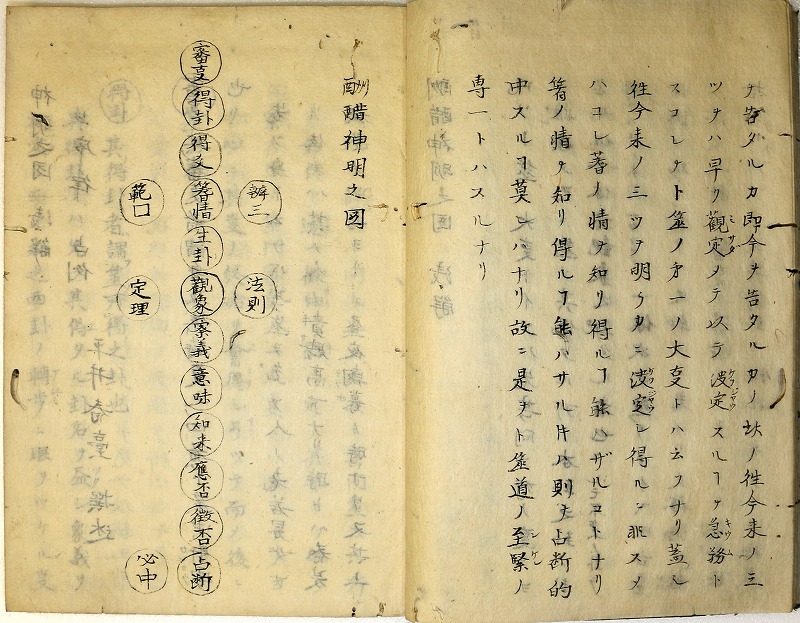 ヲ告タルカ即今ヲ告タルカノ此ノ徃今来ノ三
ツヲハ早ク觀定メテ以テ决定スルヿヲ急務ト
スコレヲト筮ノ第一ノ大叓トハ云フナリ蓋シ
徃今来ノ三ツヲ明ラカニ决定シ得ルニ非スメ
ハコレ蓍ノ情ヲ知リ得ルヿ能ハザルコトナリ
蓍ノ情ヲ知リ得ルヿ能ハサル片ハ則チ占断的
中スルヿ莫レハナリ故ニ是ヲト筮道ノ至緊ノ
専一トハスルナリ
酬醋神明之図
審叓
得卦
得爻
蓍情
生卦
觀象
察義
意味
知来
應否
徴否
占断
辨三
法則
範囗
定理
必中